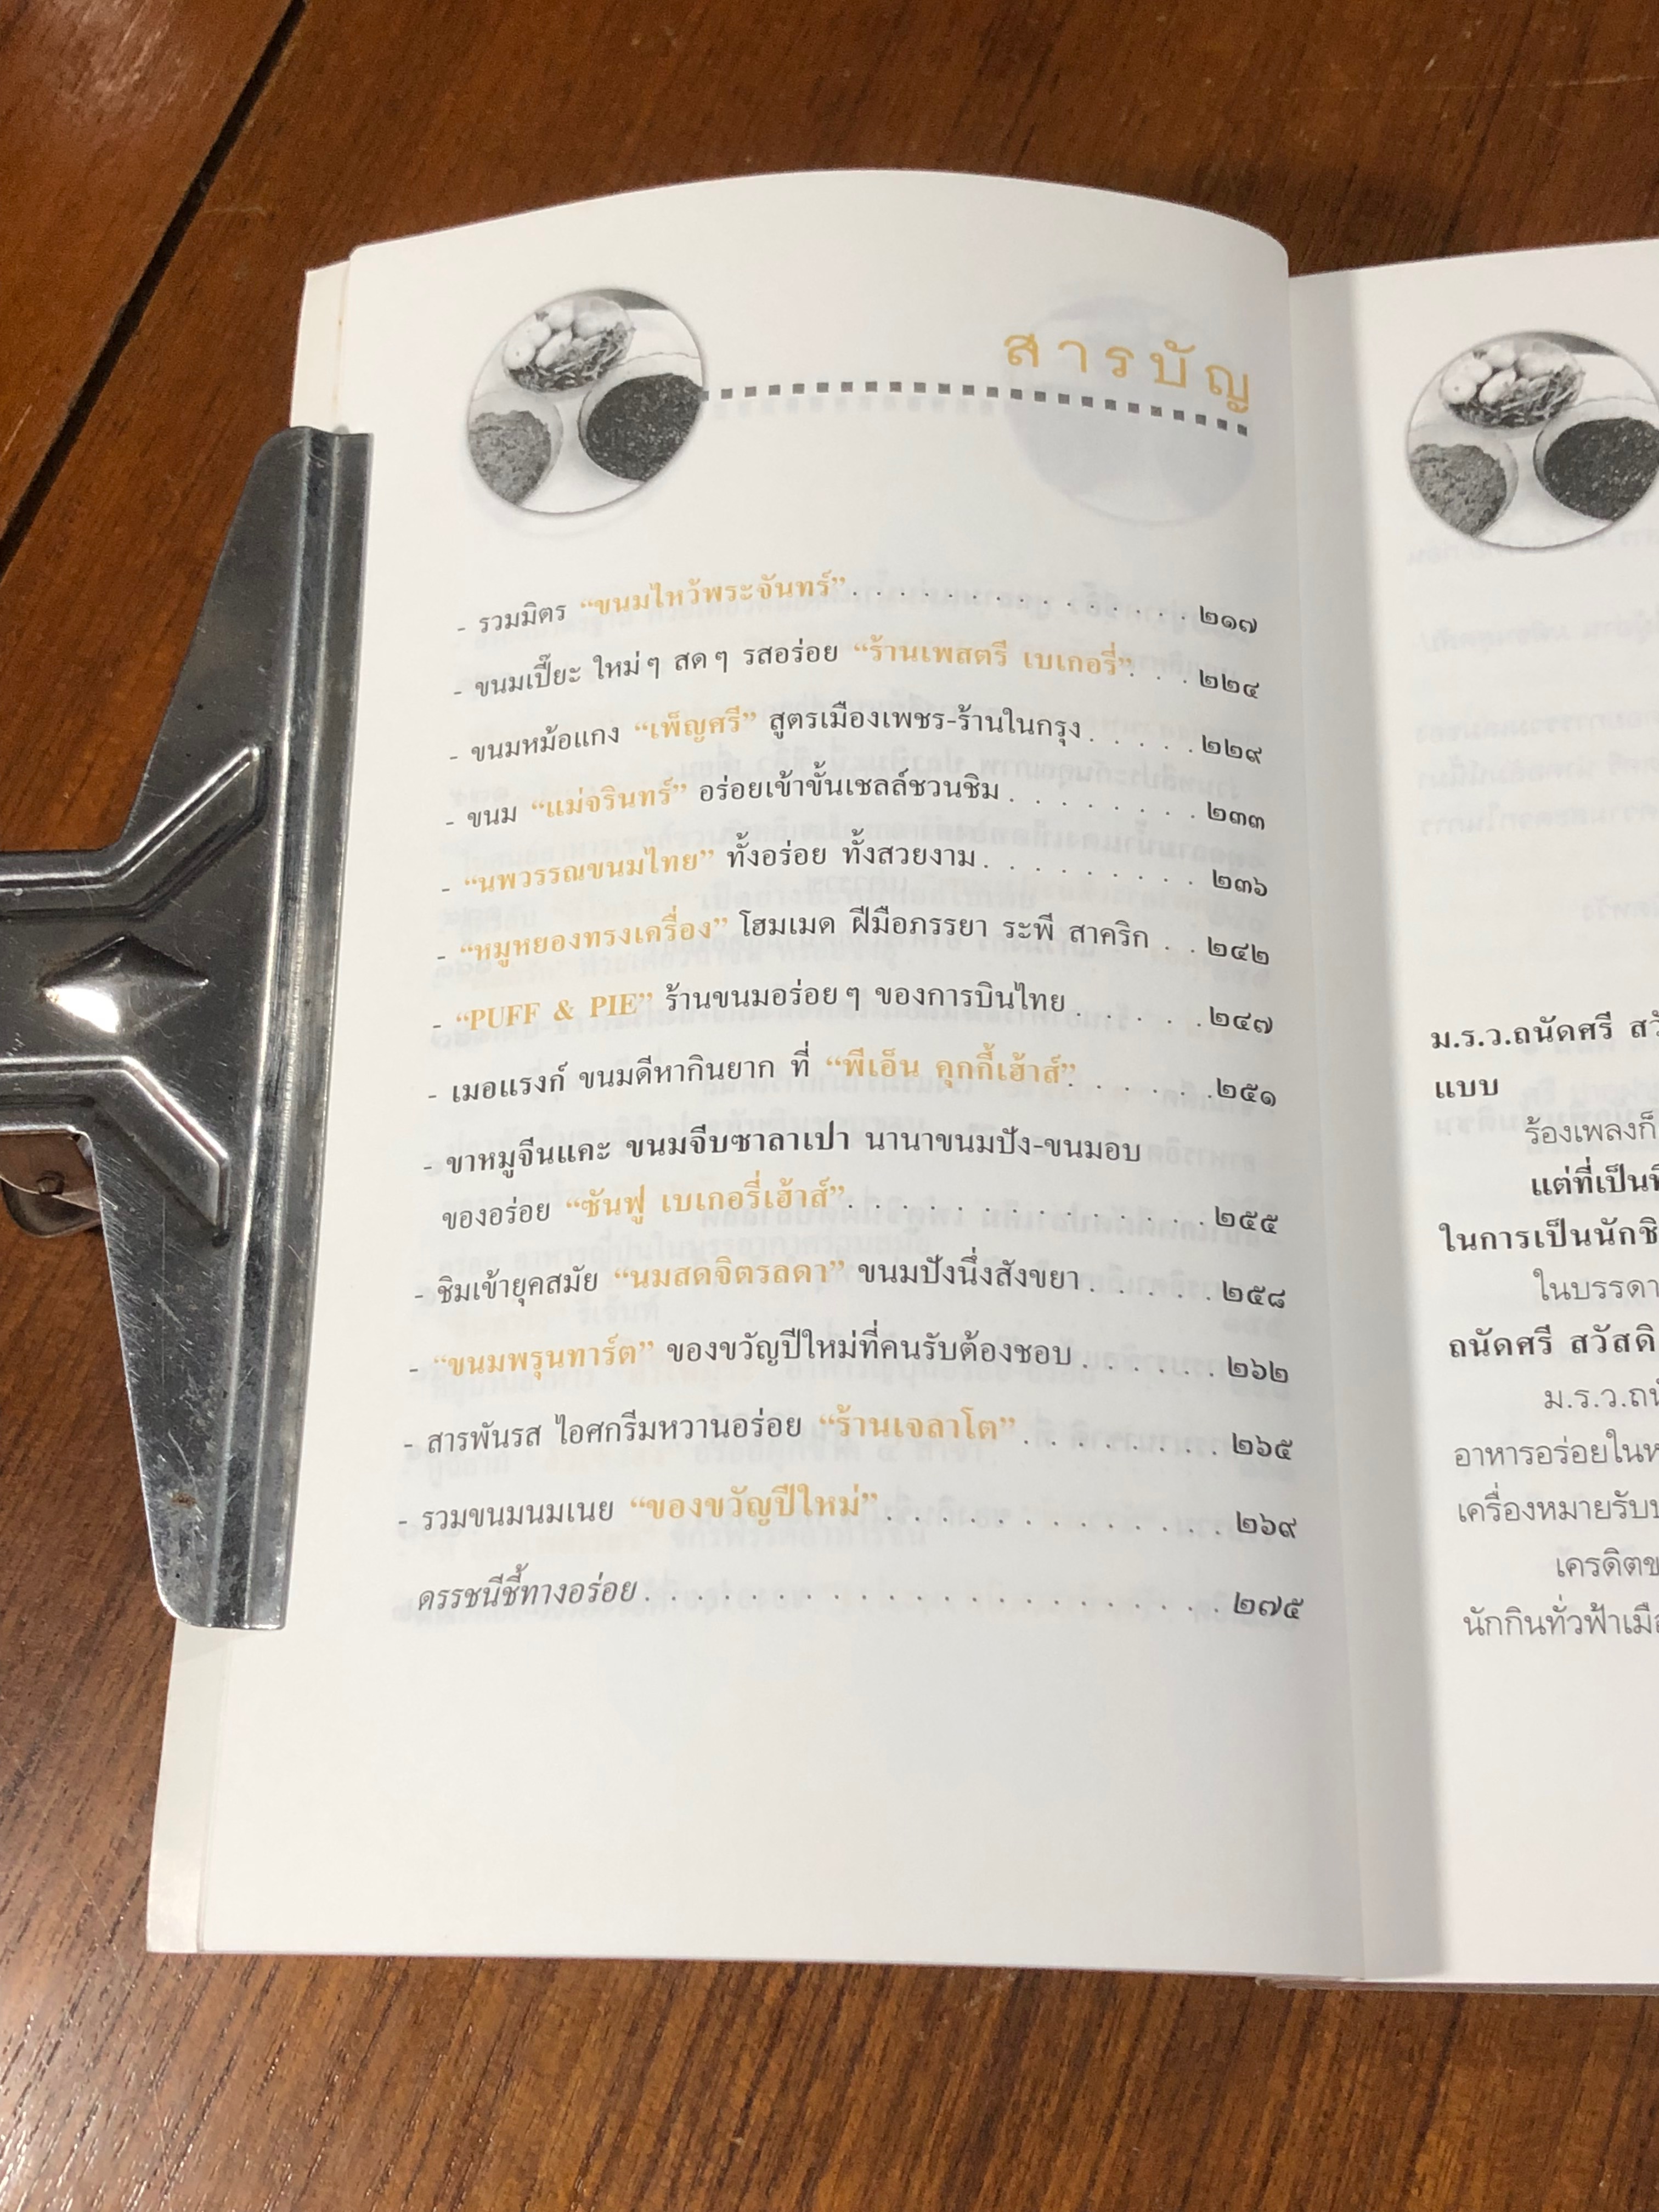 สารบัญ
- รวมมิตร “ขนมไหว้พระจันทร์” . . . . . . . . . . . . . . . ๒๑๗
- ขนมเปี๊ยะ ใหม่ๆ สดๆ รสอร่อย “ร้านเพสตรี เบเกอรี่” . . . ๒๒๔
- ขนมหม้อแกง “เพ็ญศรี” สูตรเมืองเพชร-ร้านในกรุง . . . . . ๒๒๙
- ขนม “แม่จรินทร์” อร่อยเข้าขั้นเชลล์ชวนชิม . . . . . . . . ๒๓๓
- “นพวรรณขนมไทย” ทั้งอร่อย ทั้งสวยงาม . . . . . . . . . ๒๓๖
- “หมูหยองทรงเครื่อง” โฮมเมด ฝีมือภรรยา ระพี สาคริก . . ๒๔๒
- “PUFF & PIE” ร้านขนมอร่อยๆ ของการบินไทย . . . . . . ๒๔๗
- เมอแรงก์ ขนมดีหากินยาก ที่ “พีเอ็น คุกกี้เฮ้าส์” . . . . . . ๒๕๑
- ขาหมูจีนแคะ ขนมจีบซาลาเปา นานาขนมปัง-ขนมอบ
ของอร่อย “ซันฟู เบเกอรี่เฮ้าส์” . . . . . . . . . . . . . . ๒๕๕
- ชิมเข้ายุคสมัย “นมสดจิตรลดา” ขนมปังนึ่งสังขยา . . . . . ๒๕๘
- “ขนมพรุนทาร์ต” ของขวัญปีใหม่ที่คนรับต้องชอบ . . . . . . ๒๖๒
- สารพันรส ไอศกรีมหวานอร่อย “ร้านเจลาโต” . . . . . . . . ๒๖๕
- รวมขนมนมเนย “ของขวัญปีใหม่” . . . . . . . . . . . . . ๒๖๙
ดรรชนีชี้ทางอร่อย . . . . . . . . . . . . . . . . . . . . . ๒๗๕
ม.ร.ว.ถนัดศรี
แบบ
ร้องเพลงก็
แต่ที่เป็น
ในการเป็นนักชิ
ในบรรดา
ถนัดศรี สวัสดิ
ม.ร.ว.ถนั
อาหารอร่อยใน
เครื่องหมายรับ
เครดิตข
นักกินทั่วฟ้าเมื